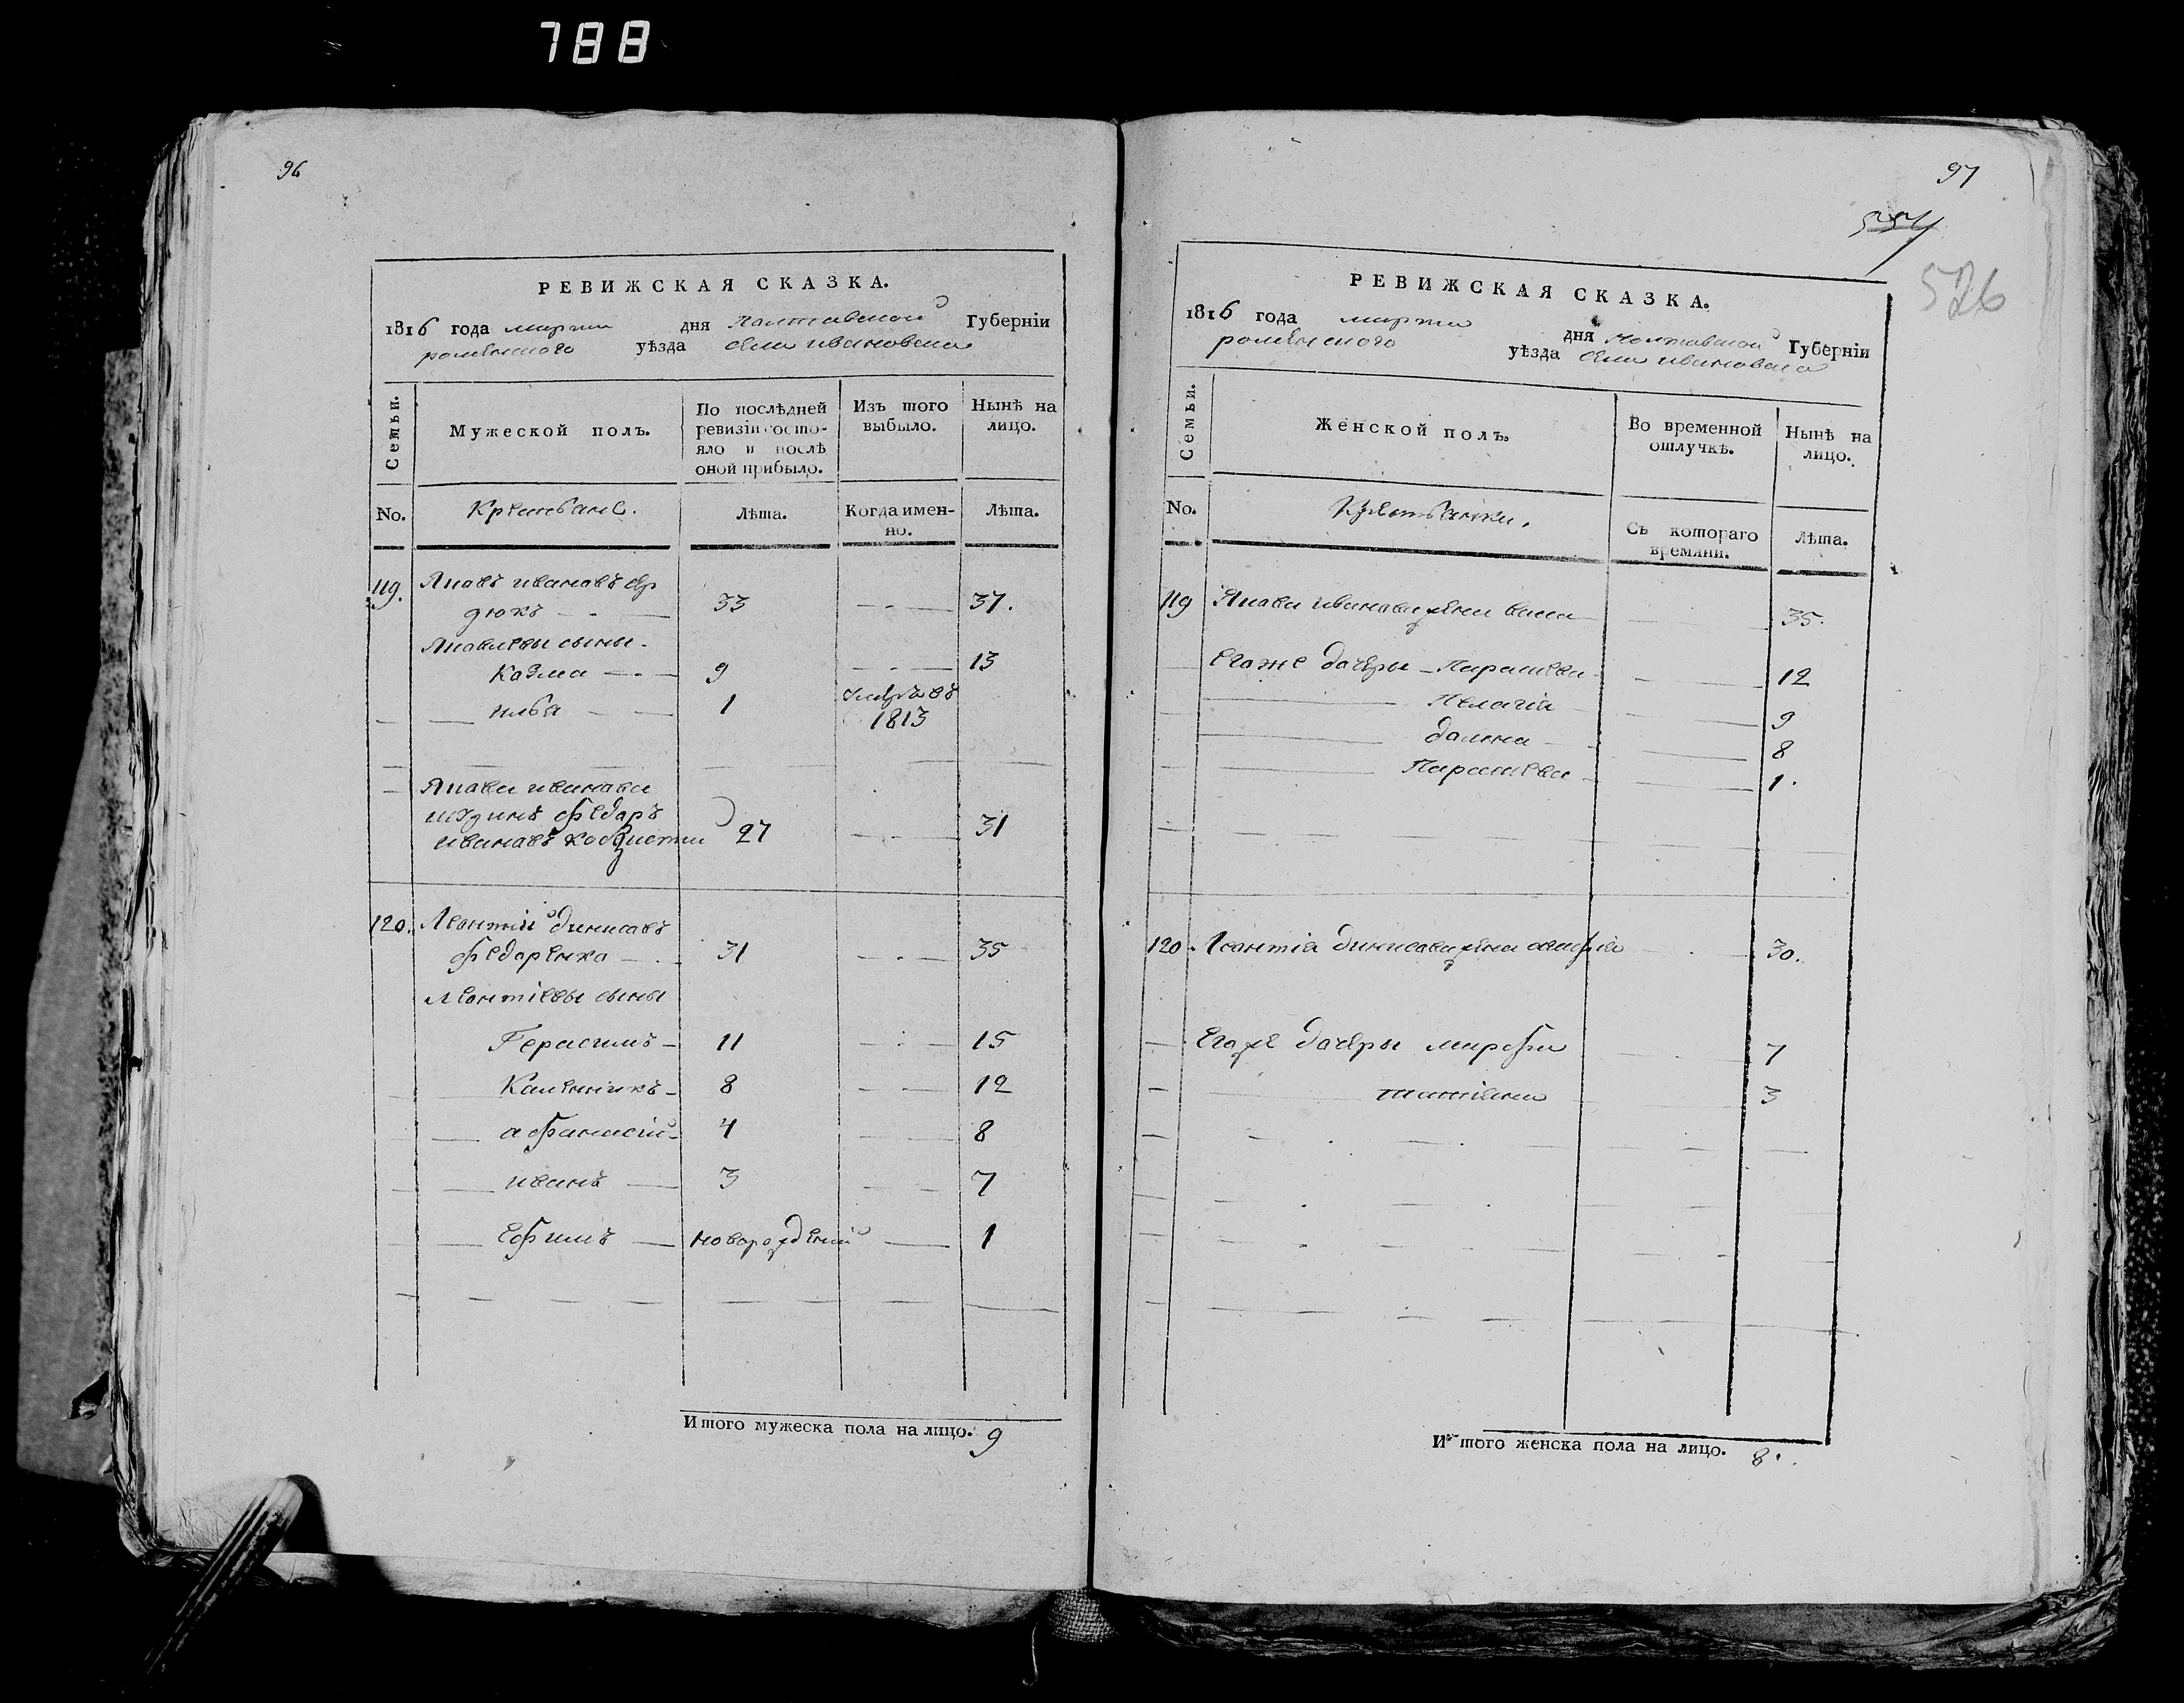 788
96
РЕВИЖСКАЯ СКАЗКА.
1816 года марта дня Полтавской Губерніи
роменского уѣзда села ивановска
Семьи. Мужеской полъ. По послѣдней ревизіи состояло и послѣ оной прибыло. Изъ того выбыло. Нынѣ на лицо.
No. Крестьане. Лѣта. Когда именно. Лѣта.
119. Яковъ ивановъ
дюкъ 33 37.
Яковлевы сыны
Козма 9 13
илья 1 въ
1813
Якова иванова
федоръ
ивановъ 27 31
120. Леонтій динисовъ
федоренко 31 35
Леонтіевы сыны
Герасимъ 11 15
Каленникъ 8 12
афанасій 4 8
иванъ 3 7
Ефимъ новорожденій 1
Итого мужеска пола на лицо. 9
97
526
РЕВИЖСКАЯ СКАЗКА.
1816 года марта дня Полтавской Губерніи
роменского уѣзда села ивановска
Семьи. Женской полъ. Во временной отлучкѣ. Нынѣ на лицо.
No. Крестьянки. Съ котораго времяни. Лѣта.
119 Якова иванова жена 35.
Егоже дочеры Параскева 12
Пелагія 9
8
Параскева 1.
120. Леонтія динисова жена 30.
Егоже дочеры марфа 7
татіяна 3
Итого женска пола на лицо. 8.